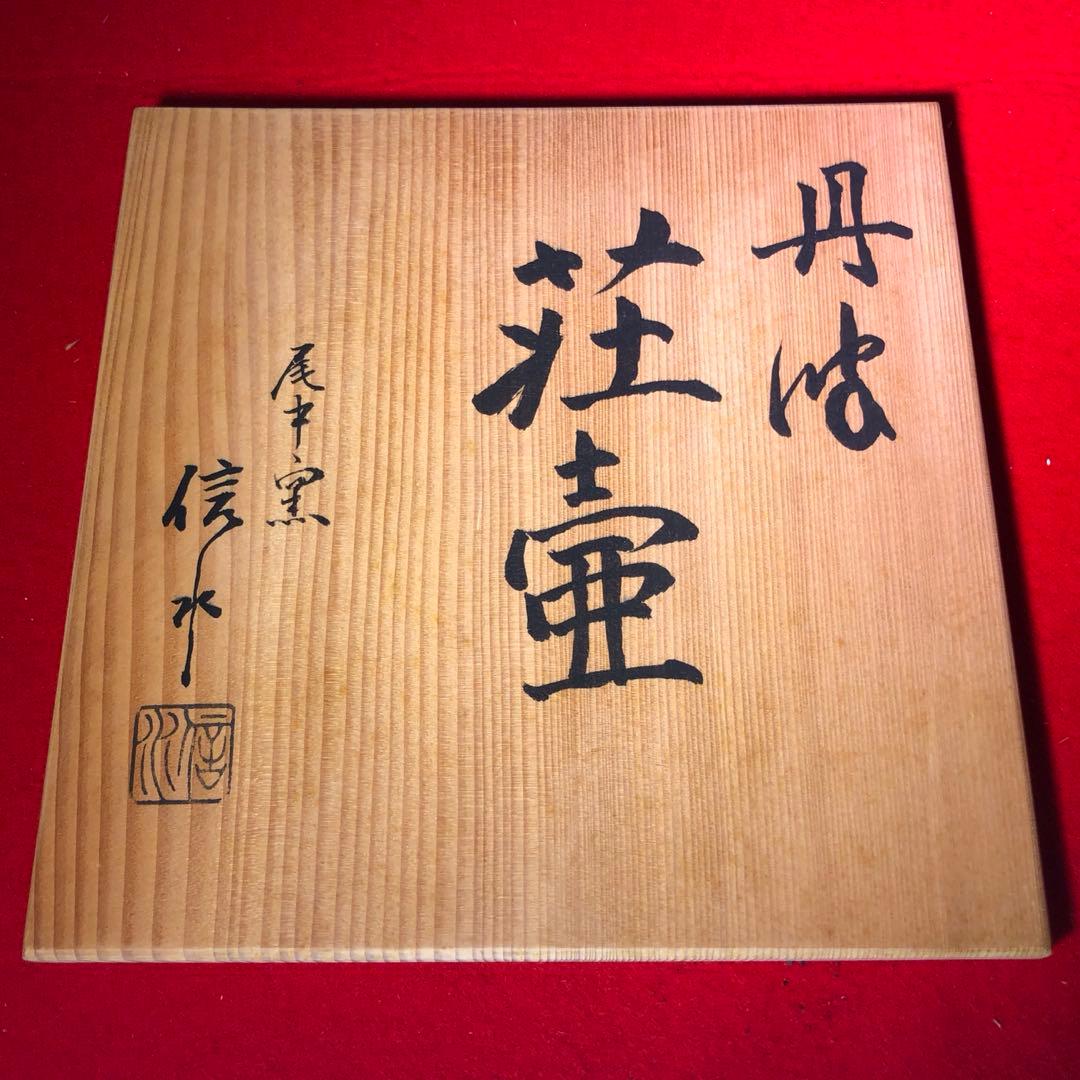 丹波
荘壷
尾中窯
信水
信水